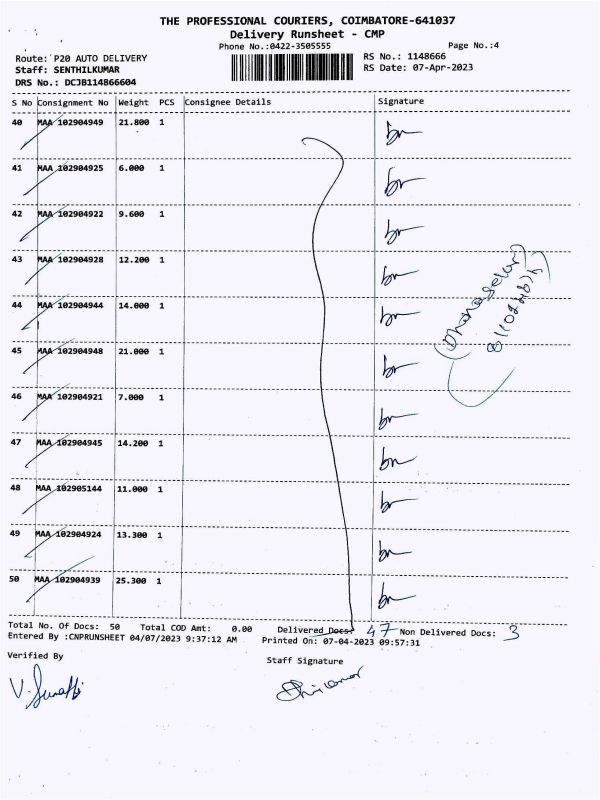 THE PROFESSIONAL COURIERS, COIMBATORE-641037
Delivery Runsheet - CMP
Phone No.:0422-3505555 Page No.:4
Route: P20 AUTO DELIVERY RS No.: 1148666
Staff: SENTHILKUMAR RS Date: 07-Apr-2023
DRS No.: DCJB114866604
S No Consignment No Weight PCS Consignee Details Signature
40 MAA 102904949 21.800 1
41 MAA 102904925 6.000 1
42 MAA 102904922 9.600 1
43 MAA 102904928 12.200 1
44 MAA 102904944 14.000 1
45 MAA 102904948 21.000 1
46 MAA 102904921 7.000 1
47 MAA 102904945 14.200 1
48 MAA 102905144 11.000 1
49 MAA 102904924 13.300 1
50 MAA 102904939 25.300 1
Total No. Of Docs: 50 Total COD Amt: 0.00 Delivered Docs: 47 Non Delivered Docs: 3
Entered By :CNPRUNSHEET 04/07/2023 9:37:12 AM Printed On: 07-04-2023 09:57:31
Verified By
Staff Signature